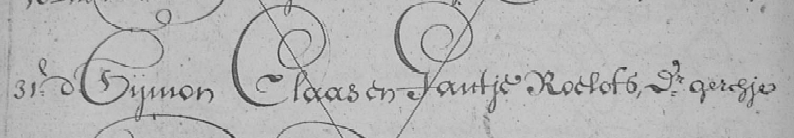 31. d Sijmon Claas en Jantje Roelofs, dr. gerchje